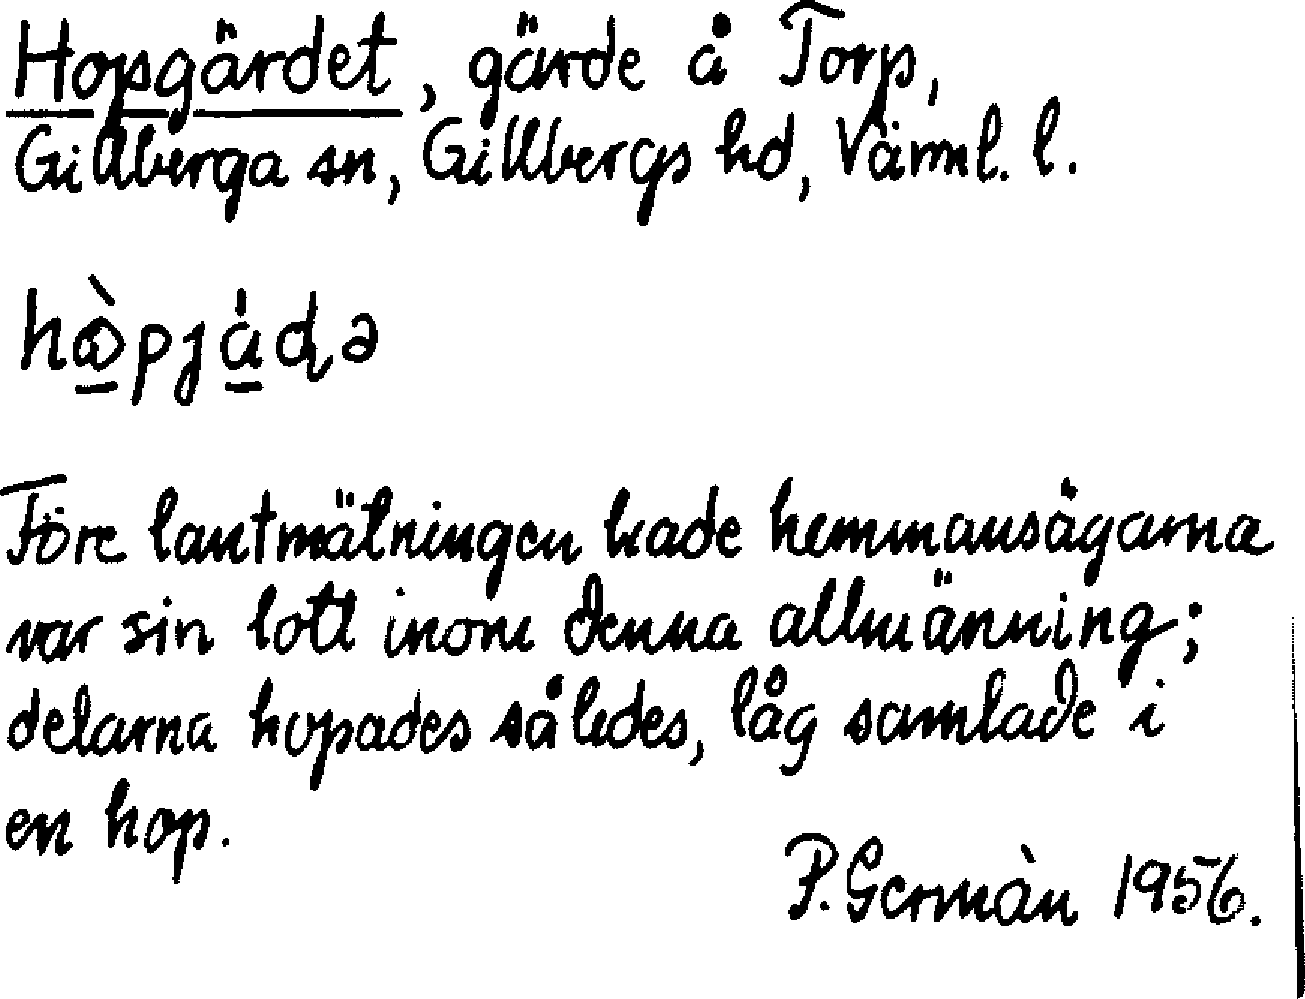 Hopgärdet, gärde å Torp,
Gillberga sn, Gillbergs hd, Värml. l.
Före lantmätningen hade hemmansägarna
var sin lott inom denna allmänning;
delarna hopades således, låg samlade i
en hop.
P. Germàn 1956.